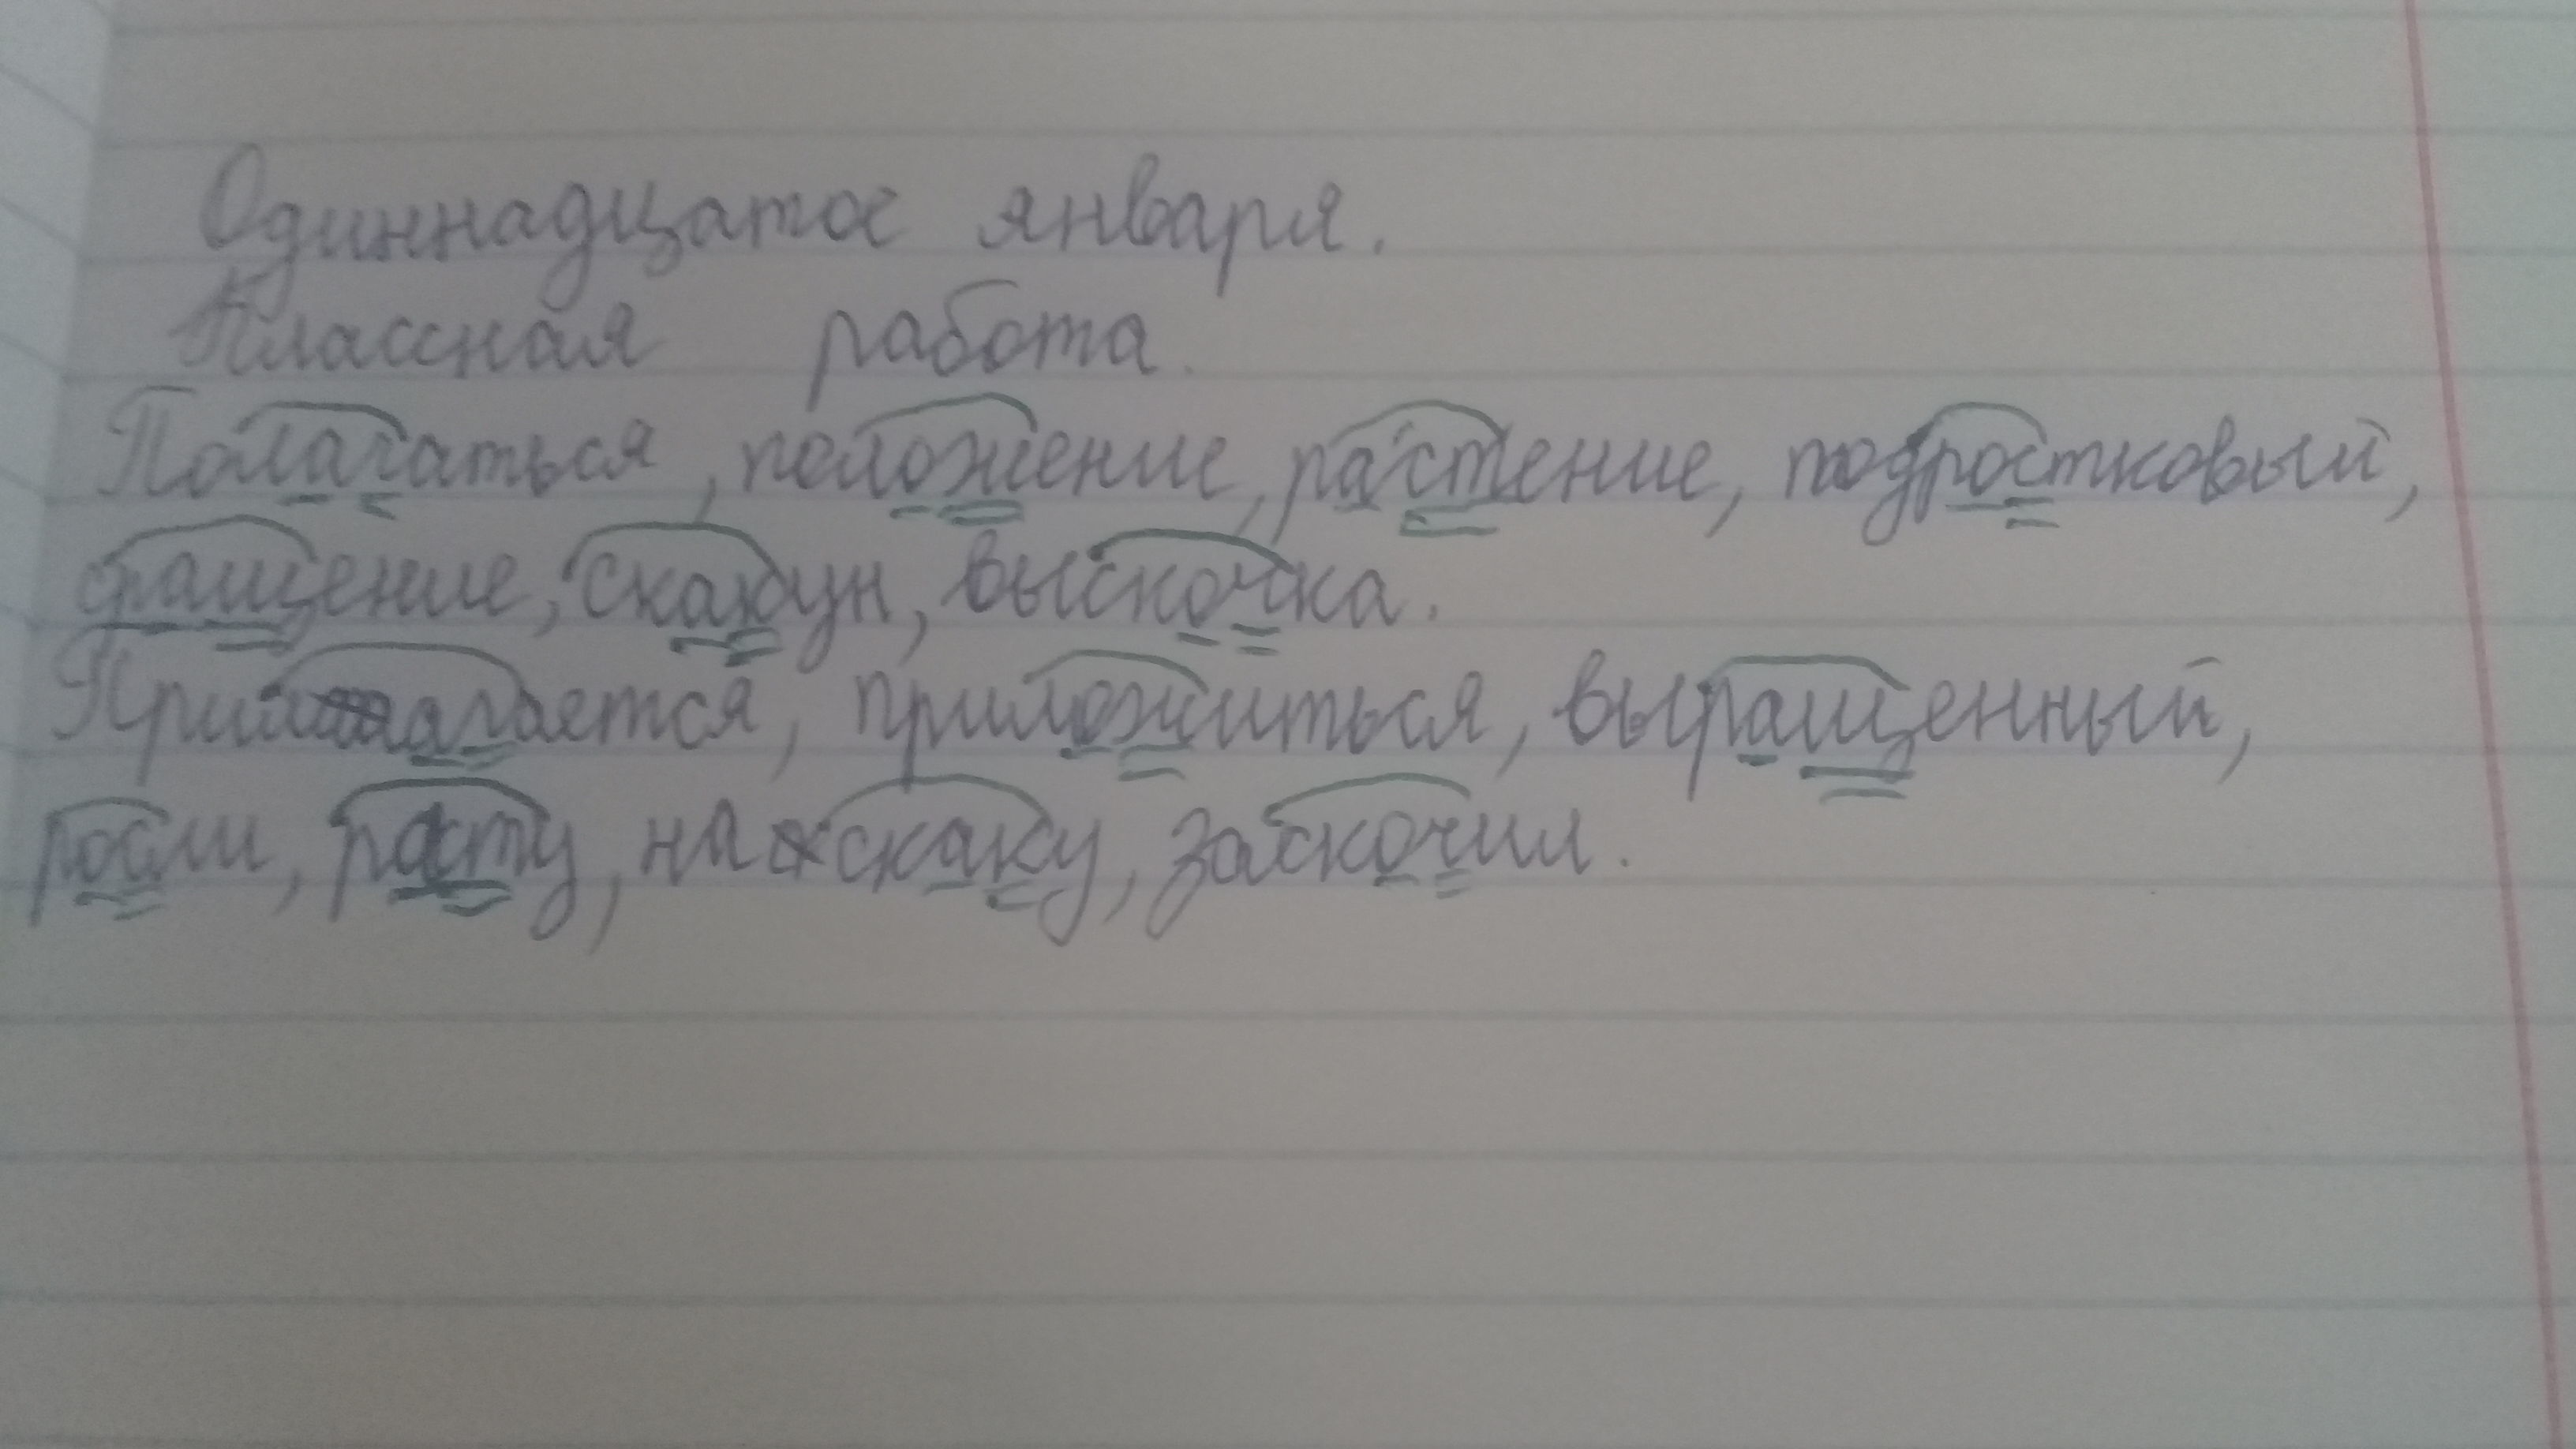 Одиннадцатое января.
Классная работа.
Полагаться, положение, растение, подростковый,
сращение, скакун, выскочка.
Прилагается, приложиться, выращенный,
росли, расту, наскаку, заскочил.